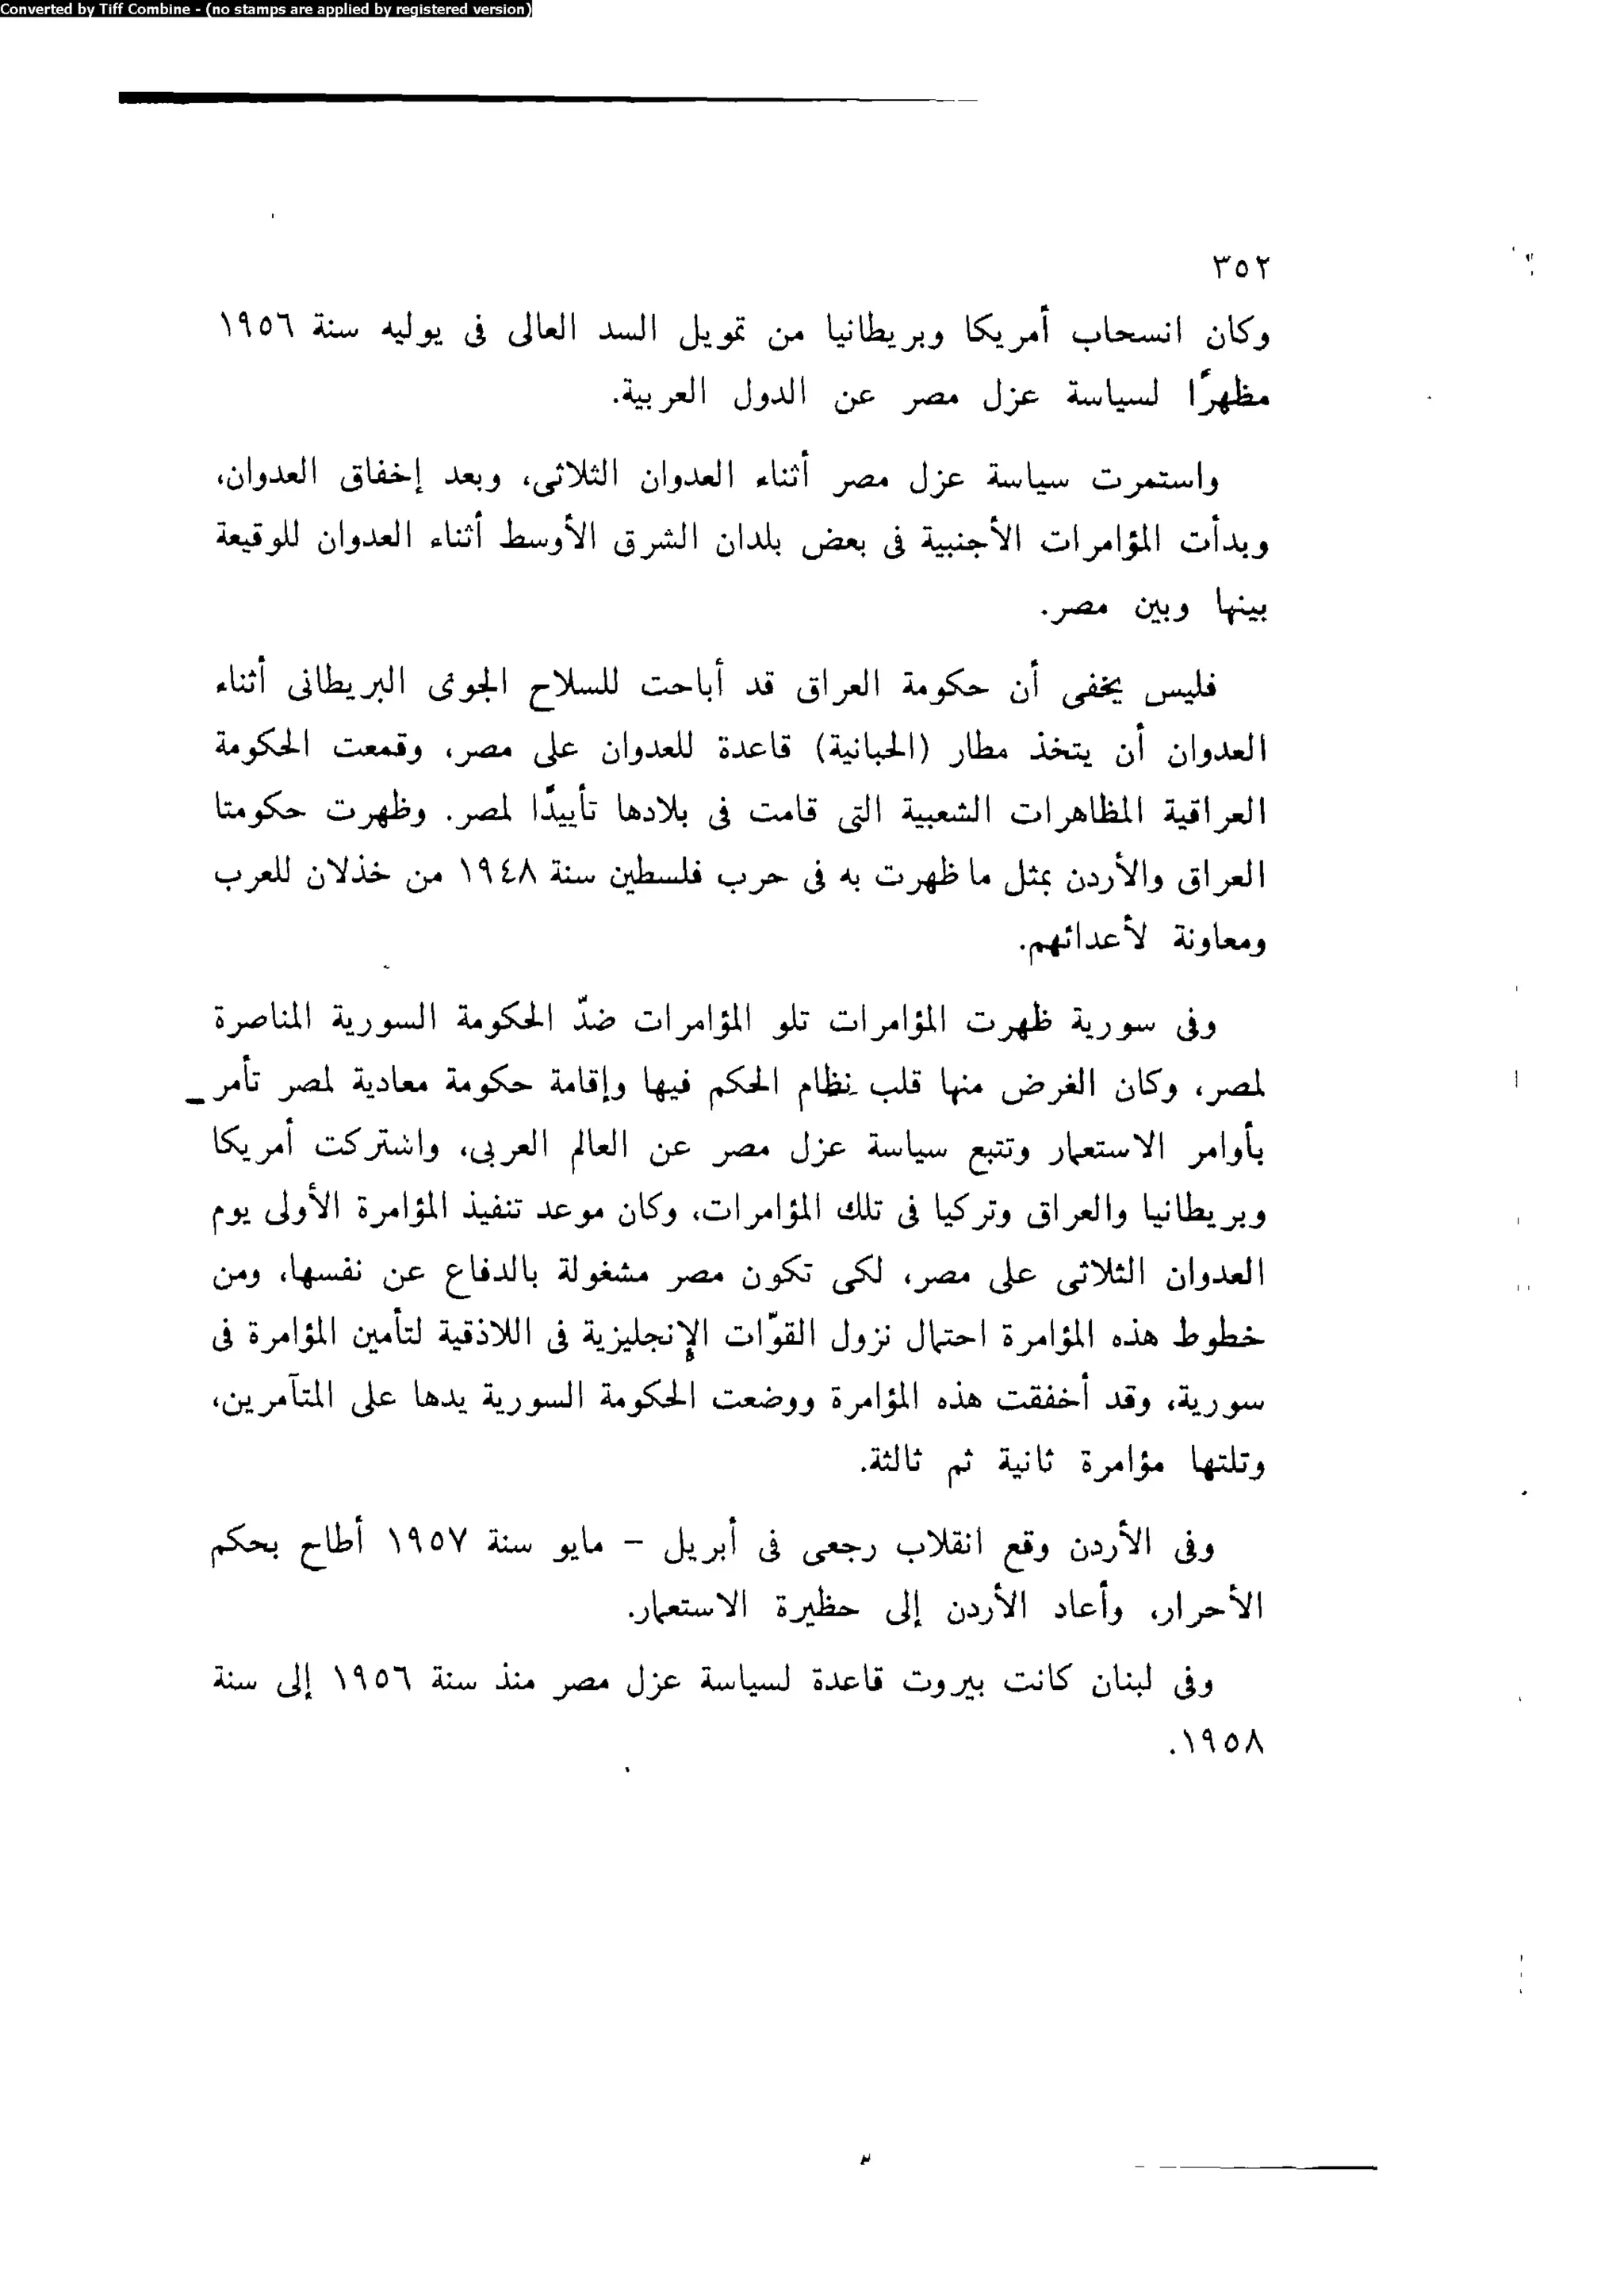 Converted by Tiff Combine - (no stamps are applied by registered version)
٣٥٢
وكان انسحاب أمريكا وبريطانيا من تمويل السد العالى فى يوليه سنة ١٩٥٦
مظهرًا لسياسة عزل مصر عن الدول العربية.
واستمرت سياسة عزل مصر أثناء العدوان الثلاثى، وبعد إخفاق العدوان،
وبدأت المؤامرات الأجنبية فى بعض بلدان الشرق الأوسط أثناء العدوان للوقيعة
بينها وبين مصر.
فليس يخفى أن حكومة العراق قد أباحت للسلاح الجوى البريطانى أثناء
العدوان أن يتخذ مطار (الحبانية) قاعدة للعدوان على مصر، وقمعت الحكومة
العراقية المظاهرات الشعبية التى قامت فى بلادها تأييدًا لمصر. وظهرت حكومتا
العراق والأردن بمثل ما ظهرت به فى حرب فلسطين سنة ١٩٤٨ من خذلان للعرب
ومعاونة لأعدائهم.
وفى سورية ظهرت المؤامرات تلو المؤامرات ضدّ الحكومة السورية المناصرة
لمصر، وكان الغرض منها قلب نظام الحكم فيها وإقامة حكومة معادية لمصر تأمر
بأوامر الاستعمار وتتبع سياسة عزل مصر عن العالم العربى، واشتركت أمريكا
وبريطانيا والعراق وتركيا فى تلك المؤامرات، وكان موعد تنفيذ المؤامرة الأولى يوم
العدوان الثلاثى على مصر، لكى تكون مصر مشغولة بالدفاع عن نفسها، ومن
خطوط هذه المؤامرة احتمال نزول القوّات الإنجليزية فى اللاذقية لتأمين المؤامرة فى
سورية، وقد أخفقت هذه المؤامرة ووضعت الحكومة السورية يدها على المتآمرين،
وتلتها مؤامرة ثانية ثم ثالثة.
وفى الأردن وقع انقلاب رجعى فى أبريل - مايو سنة ١٩٥٧ أطاح بحكم
الأحرار، وأعاد الأردن إلى حظيرة الاستعمار.
وفى لبنان كانت بيروت قاعدة لسياسة عزل مصر منذ سنة ١٩٥٦ إلى سنة
١٩٥٨.